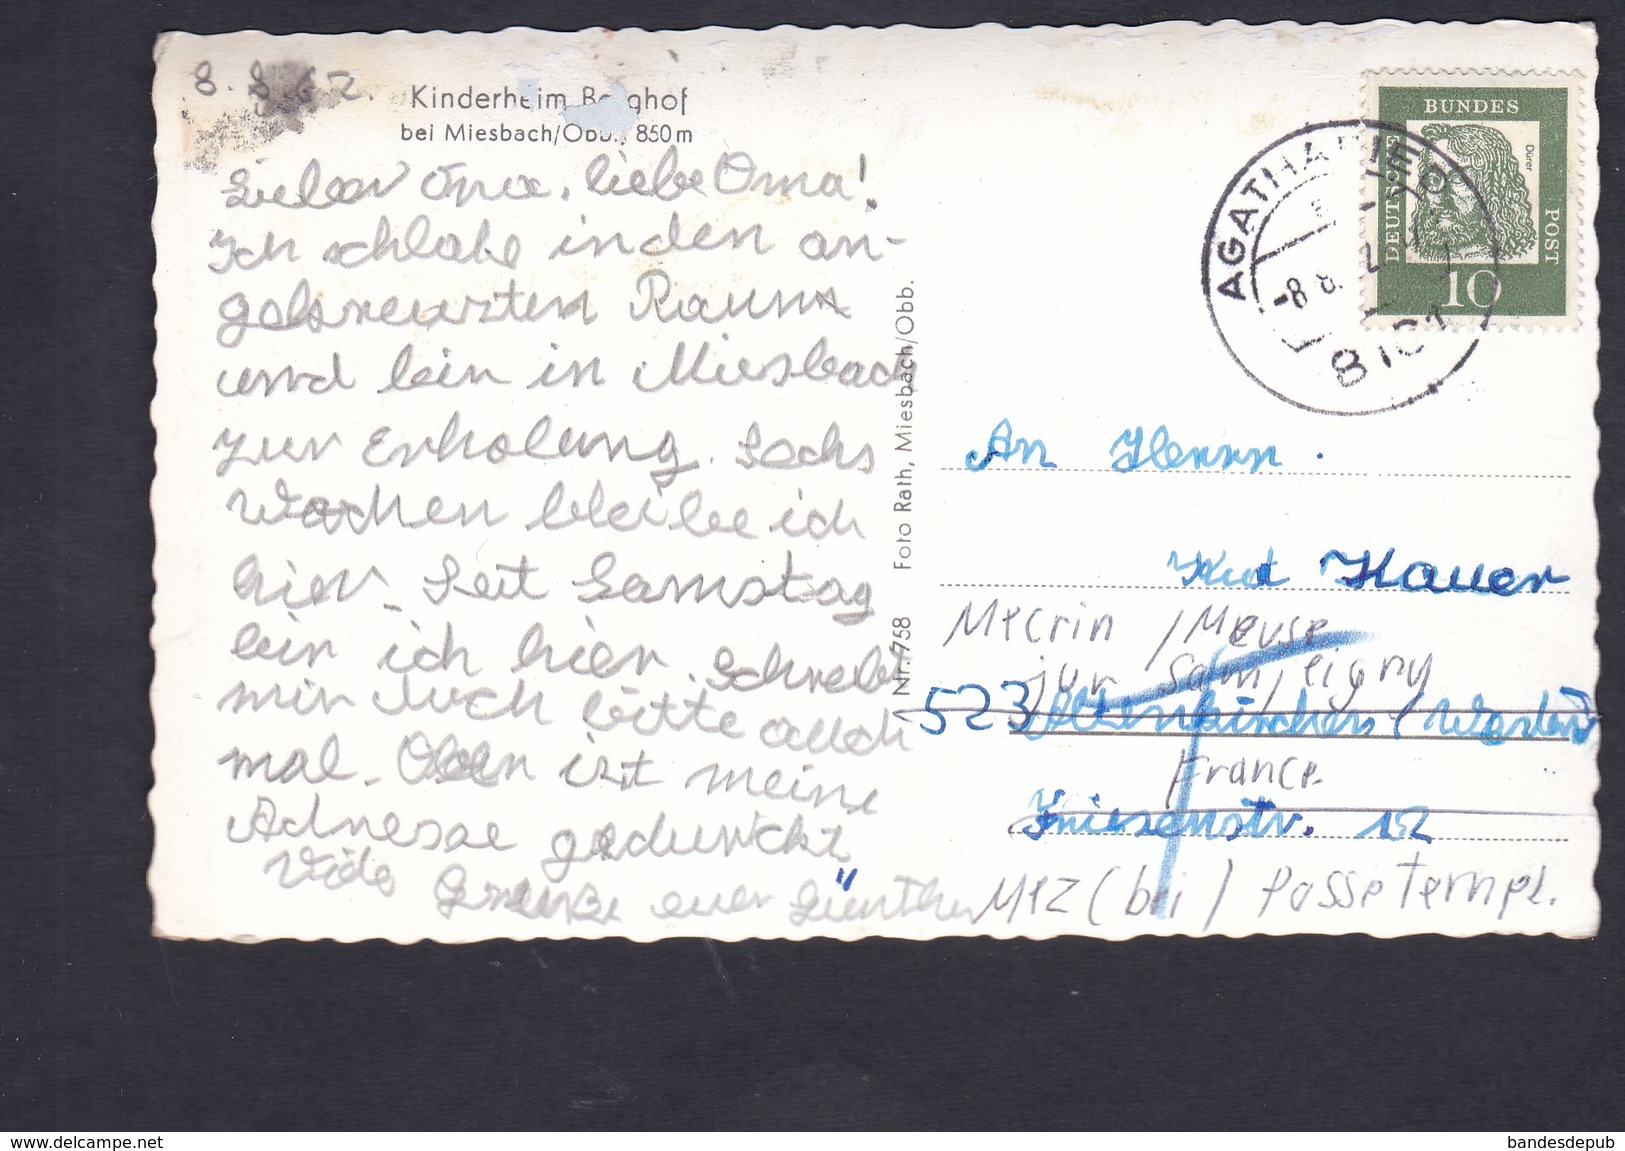 8. 8. 62.
Kinderheim Berghof
bei Miesbach/Obb., 850 m
Lieber Opa, liebe Oma!
Ich schlafe in den an-
gekreuzten Raum
und bin in Miesbach
zur Erholung. Sechs
Wochen bleibe ich
hier. Seit Samstag
bin ich hier. Schreibt
mir doch bitte auch
mal. Oben ist meine
Adresse gedruckt
Viele Grüße euer Günther
Nr. 758 Foto Rath, Miesbach/Obb.
BUNDES
DEUTSCHE
POST
Dürer
10
AGATHARIED
-8.8.
8161
An Herrn
Kurt Hauer
Mecrin / Meuse
jur Sampigny
523 Altenkirchen (Westerwald
France
12
Metz (bei) Posse
www.delcampe.net
bandesdepub